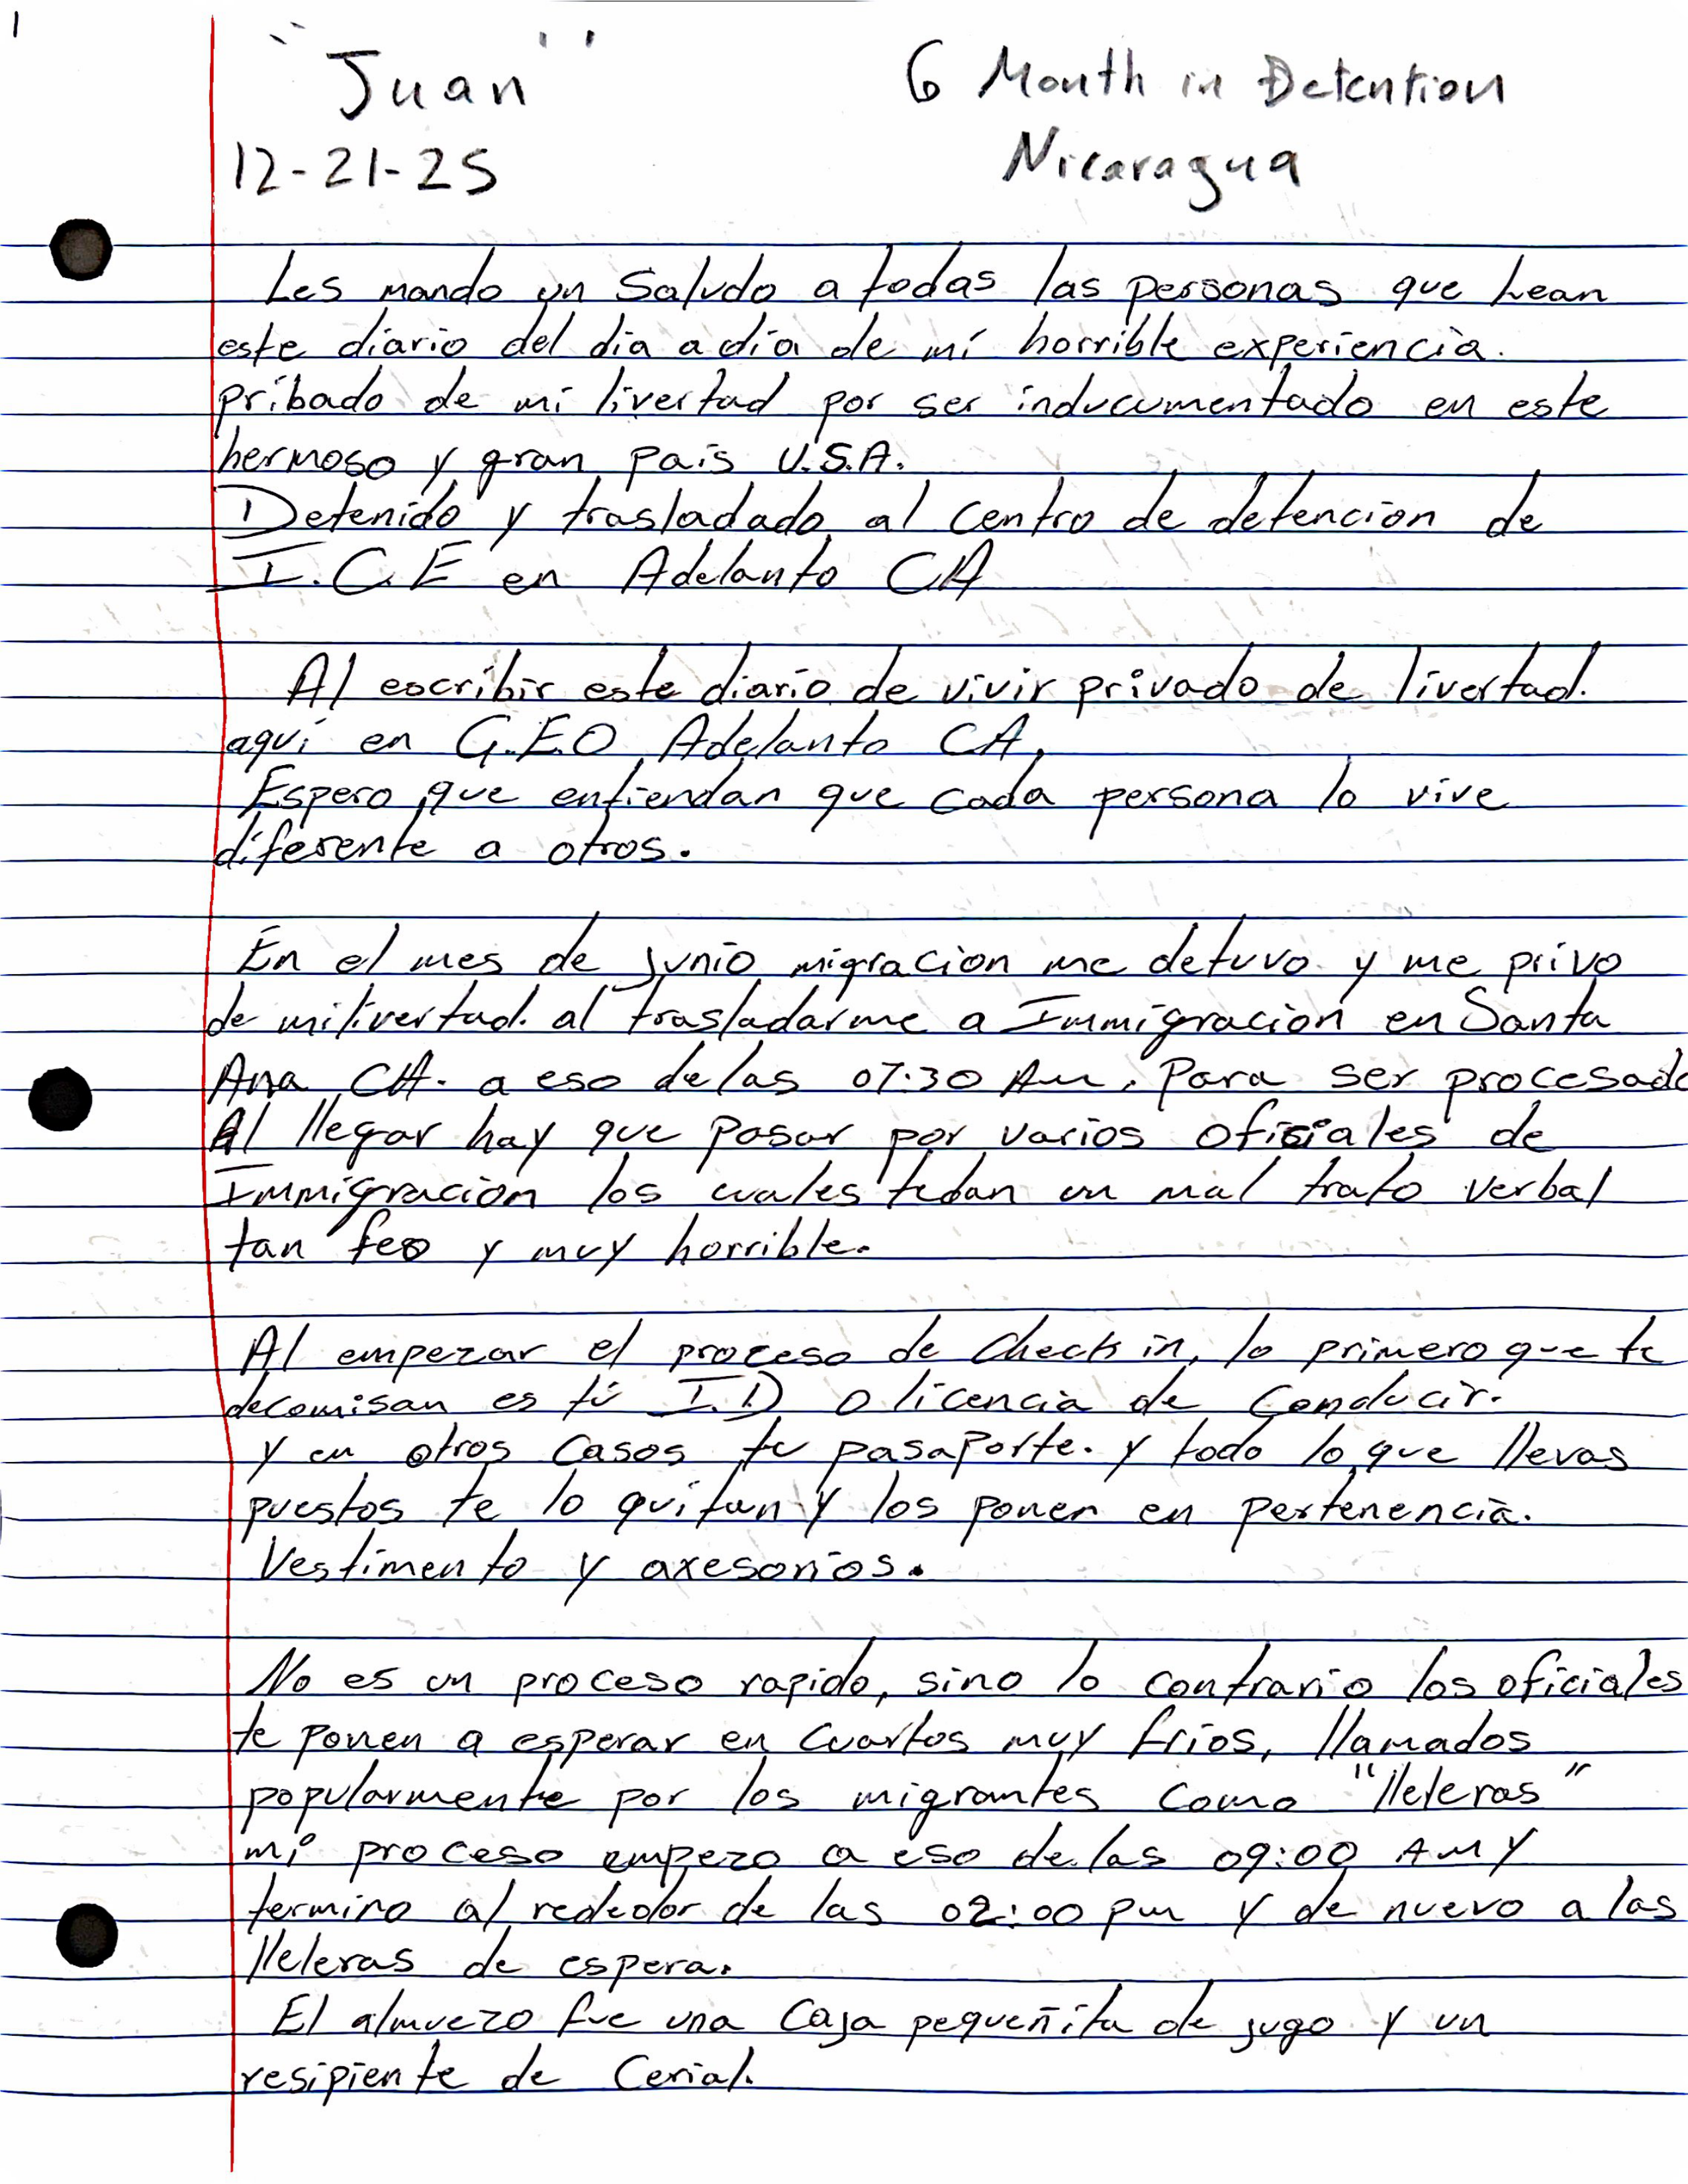 1
"Juan"
6 Month in Detention
12-21-25
Nicaragua
Les mando un Saludo a todas las personas que Lean
este diario del dia a dia de mi horrible experiencia.
pribado de mi livertad por ser inducumentado en este
hermoso y gran pais U.S.A.
Detenido y trasladado al centro de detencion de
I.C.E en Adelanto CA
Al escribir este diario de vivir privado de livertad.
aqui en G.E.O Adelanto CA,
Espero que entiendan que cada persona lo vive
diferente a otros.
En el mes de junio migracion me detuvo y me privo
de mi livertad. al trasladarme a Immigracion en Santa
Ana CA. a eso de las 07:30 Am. Para ser procesado
Al llegar hay que pasar por varios oficiales de
Immigracion los cuales te dan un mal trato verbal
tan feo y muy horrible.
Al empezar el proceso de Check in, lo primero que te
decomisan es tú I.D o licencia de Conducir.
y en otros Casos tu pasaporte. y todo lo que llevas
puestos te lo quitan y los ponen en pertenencia.
Vestimento y axesorios.
No es un proceso rapido, sino lo contrario los oficiales
te ponen a esperar en Cuartos muy frios, llamados
popularmente por los migrantes como "lleleras"
mi proceso empezo a eso de las 09:00 AM y
termino al rededor de las 02:00 pm y de nuevo a las
lleleras de espera.
El almuezo fue una Caja pequeñita de jugo y un
resipiente de Cerial.